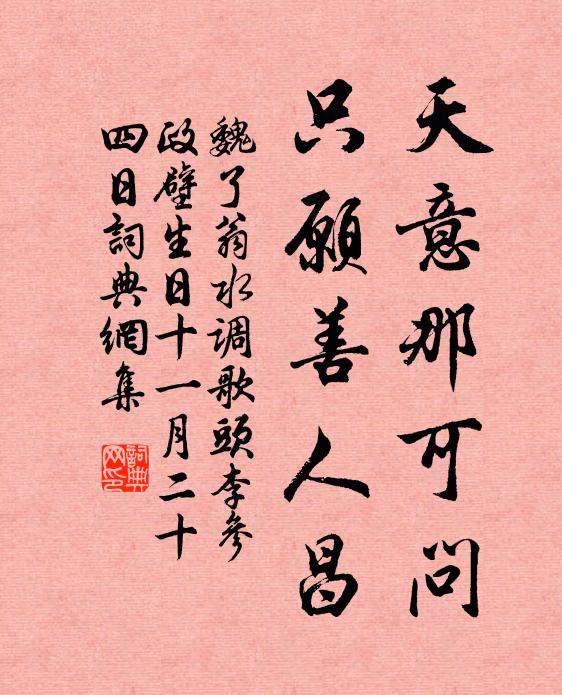 天意那可問
只願善人昌
魏了翁水调歌頭李參
政壁生日十一月二十
四日詞典網集
詞典网印